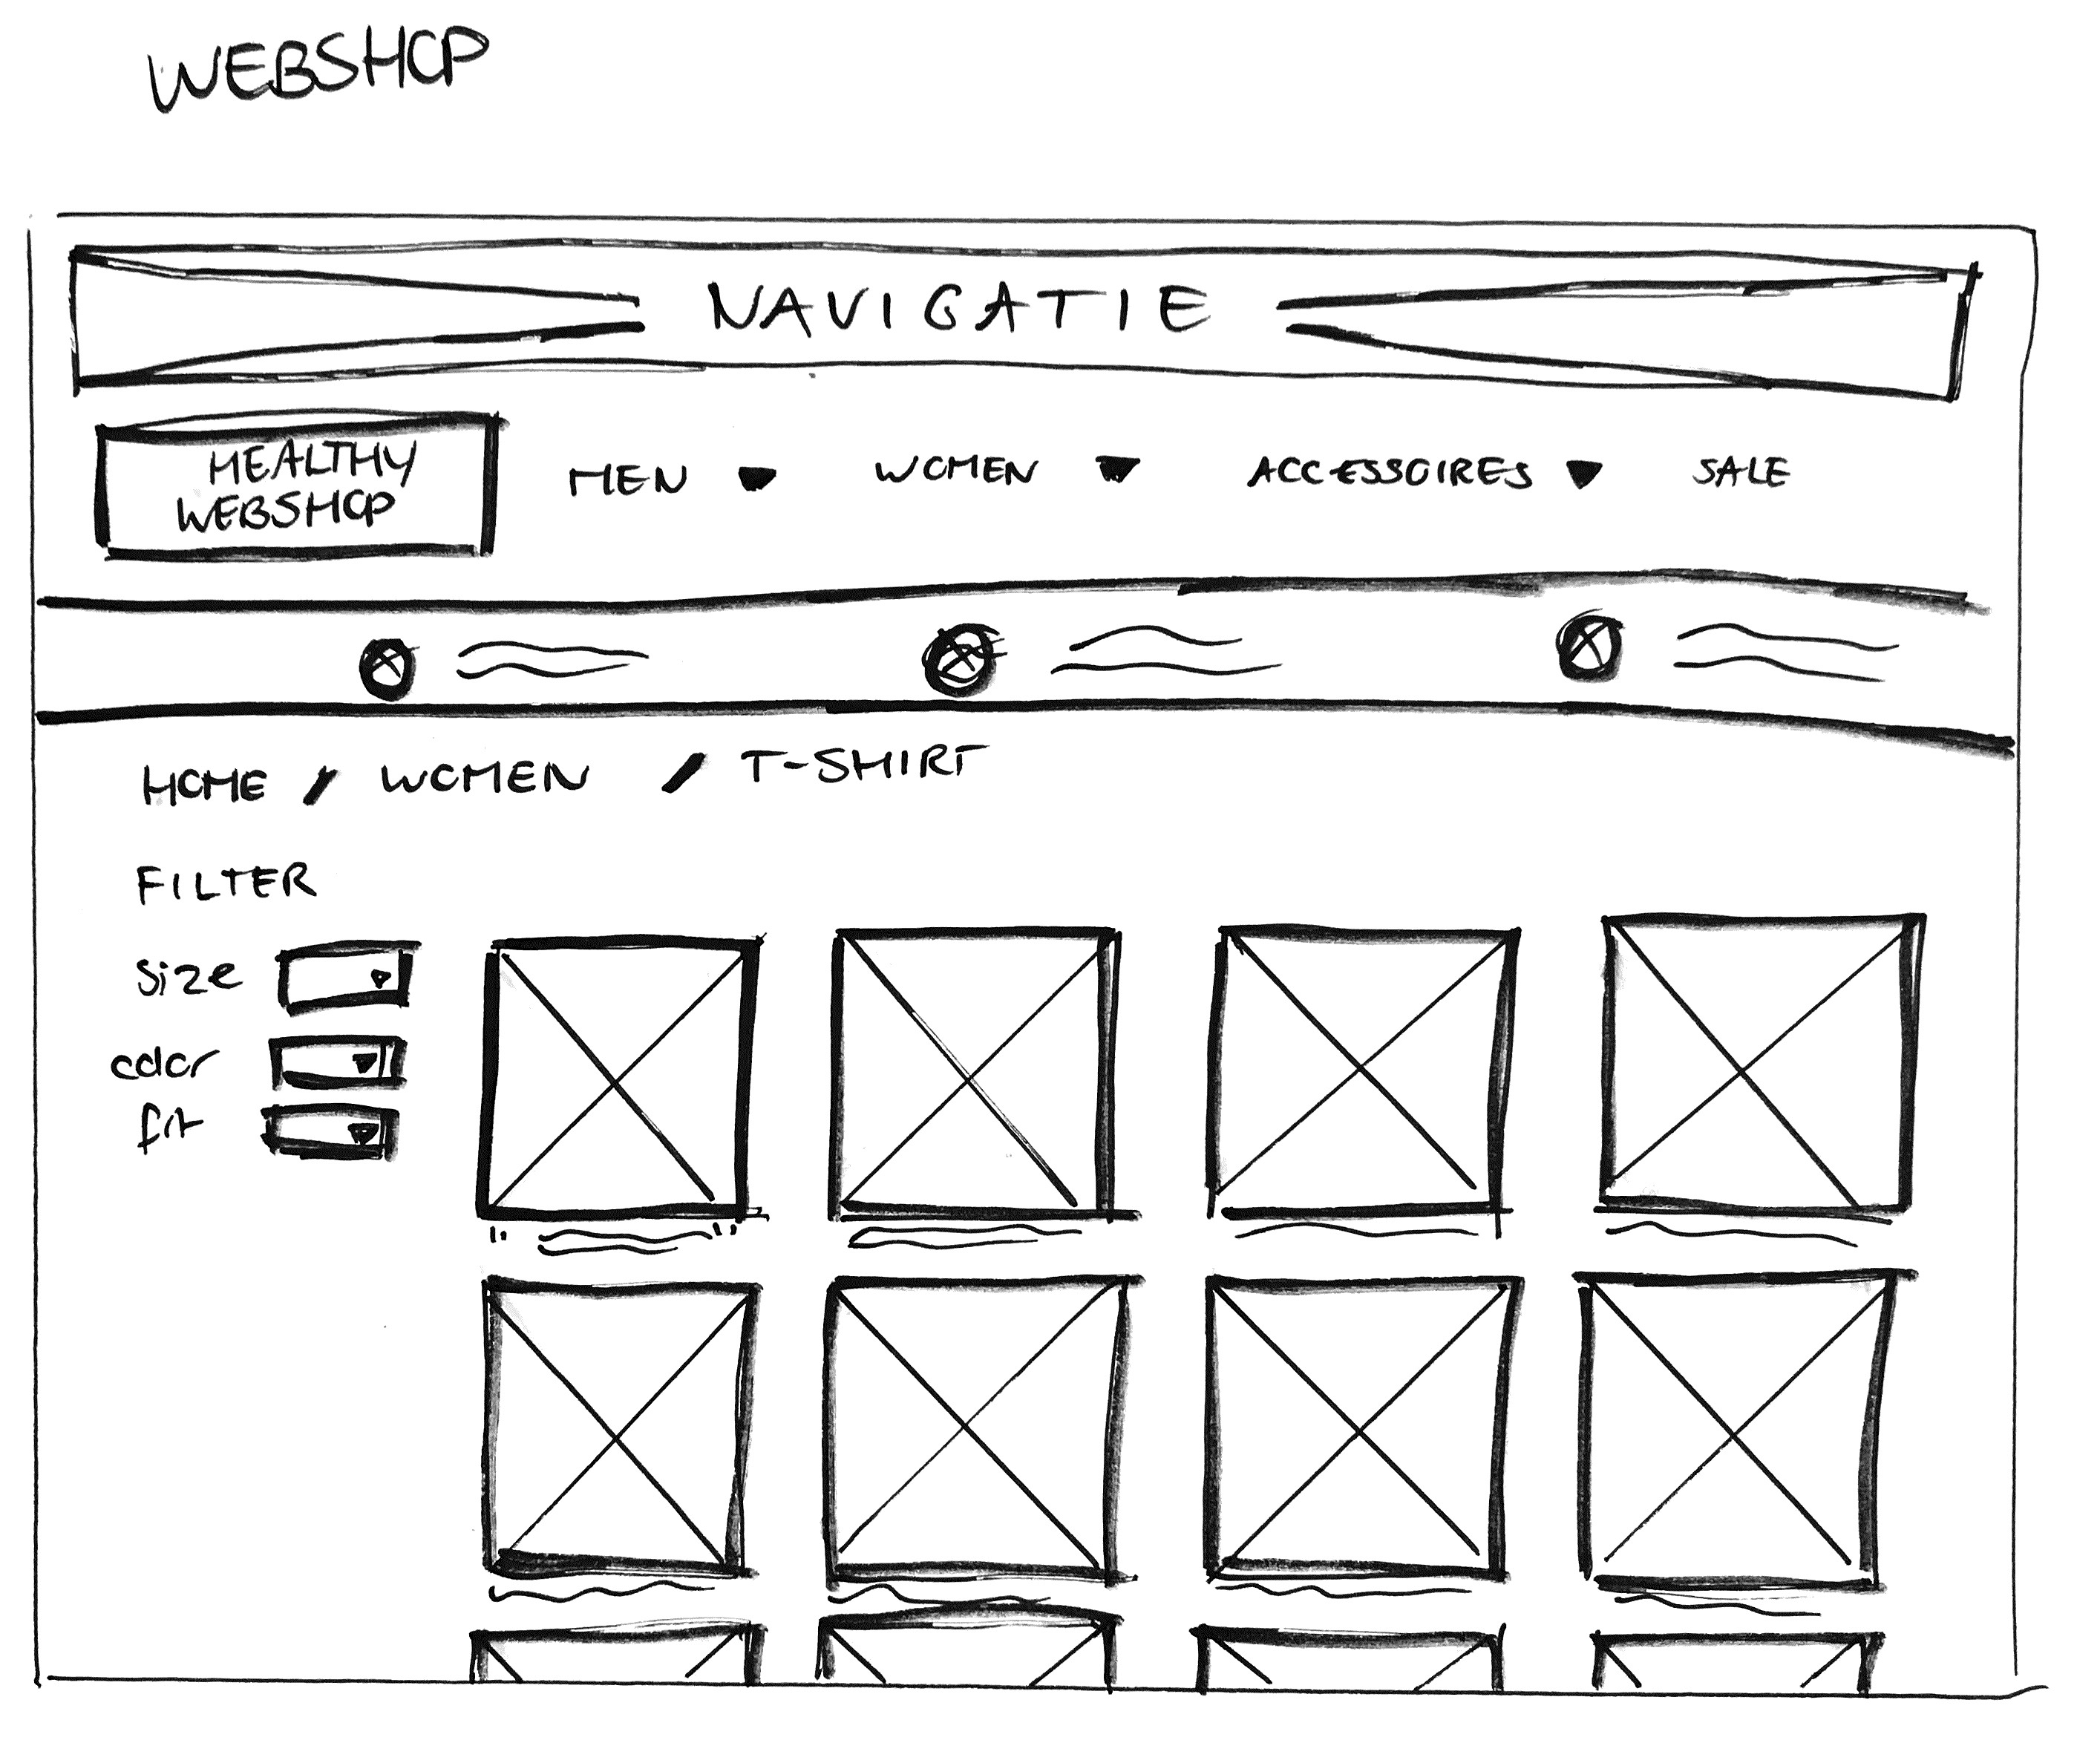 WEBSHOP
NAVIGATIE
HEALTHY
WEBSHOP
MEN WOMEN ACCESSOIRES SALE
HOME / WOMEN / T-SHIRT
FILTER
size
color
fit